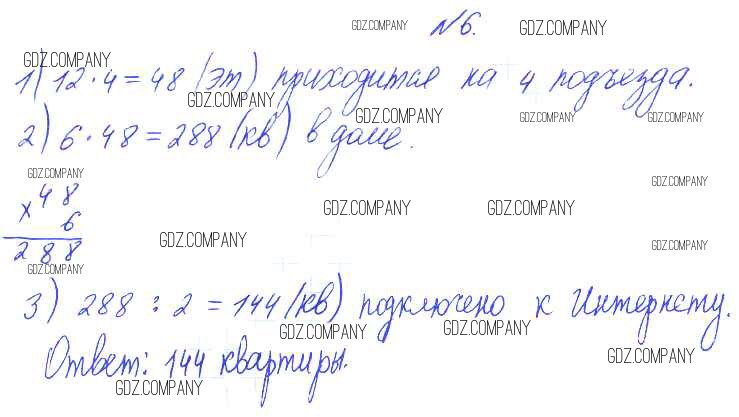 GDZ.COMPANY № 6. GDZ.COMPANY
GDZ.COMPANY
1) 12 · 4 = 48 (эт) приходится на 4 подъезда.
GDZ.COMPANY
GDZ.COMPANY GDZ.COMPANY GDZ.COMPANY
2) 6 · 48 = 288 (кв) в доме.
GDZ.COMPANY
GDZ.COMPANY
× 48
GDZ.COMPANY GDZ.COMPANY
6
GDZ.COMPANY
288 GDZ.COMPANY
GDZ.COMPANY
3) 288 : 2 = 144 (кв) подключено к Интернету.
GDZ.COMPANY GDZ.COMPANY
Ответ: 144 квартиры.
GDZ.COMPANY
GDZ.COMPANY